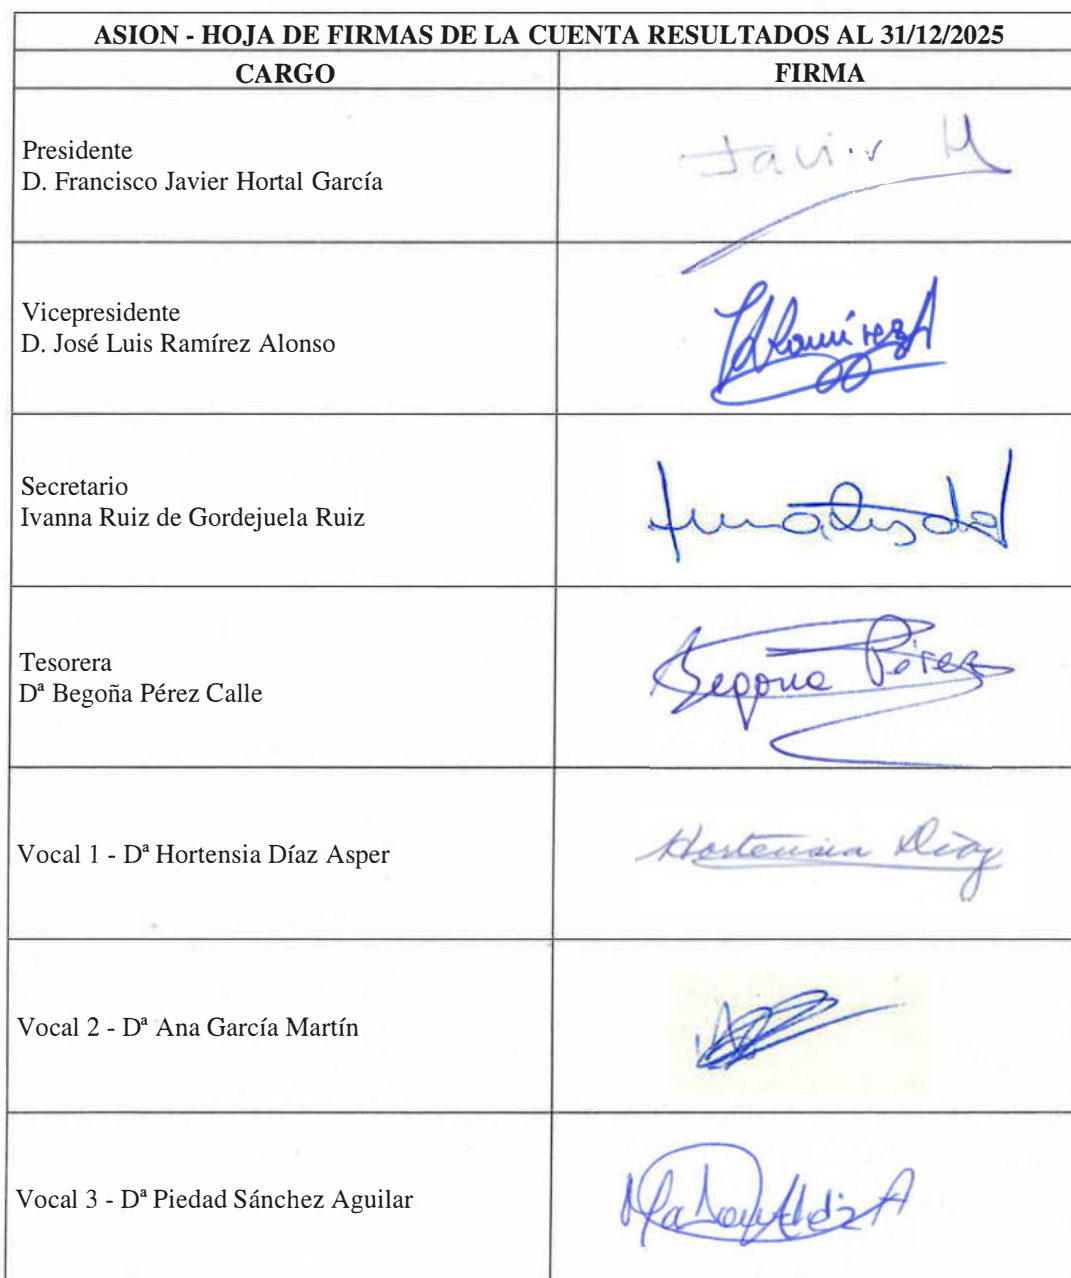 ASION - HOJA DE FIRMAS DE LA CUENTA RESULTADOS AL 31/12/2025
CARGO FIRMA
Presidente
D. Francisco Javier Hortal García
Javier H
Vicepresidente
D. José Luis Ramírez Alonso
Ramírez A
Secretario
Ivanna Ruiz de Gordejuela Ruiz
Tesorera
Dª Begoña Pérez Calle
Begoña Pérez
Vocal 1 - Dª Hortensia Díaz Asper
Hortensia Díaz
Vocal 2 - Dª Ana García Martín
Vocal 3 - Dª Piedad Sánchez Aguilar